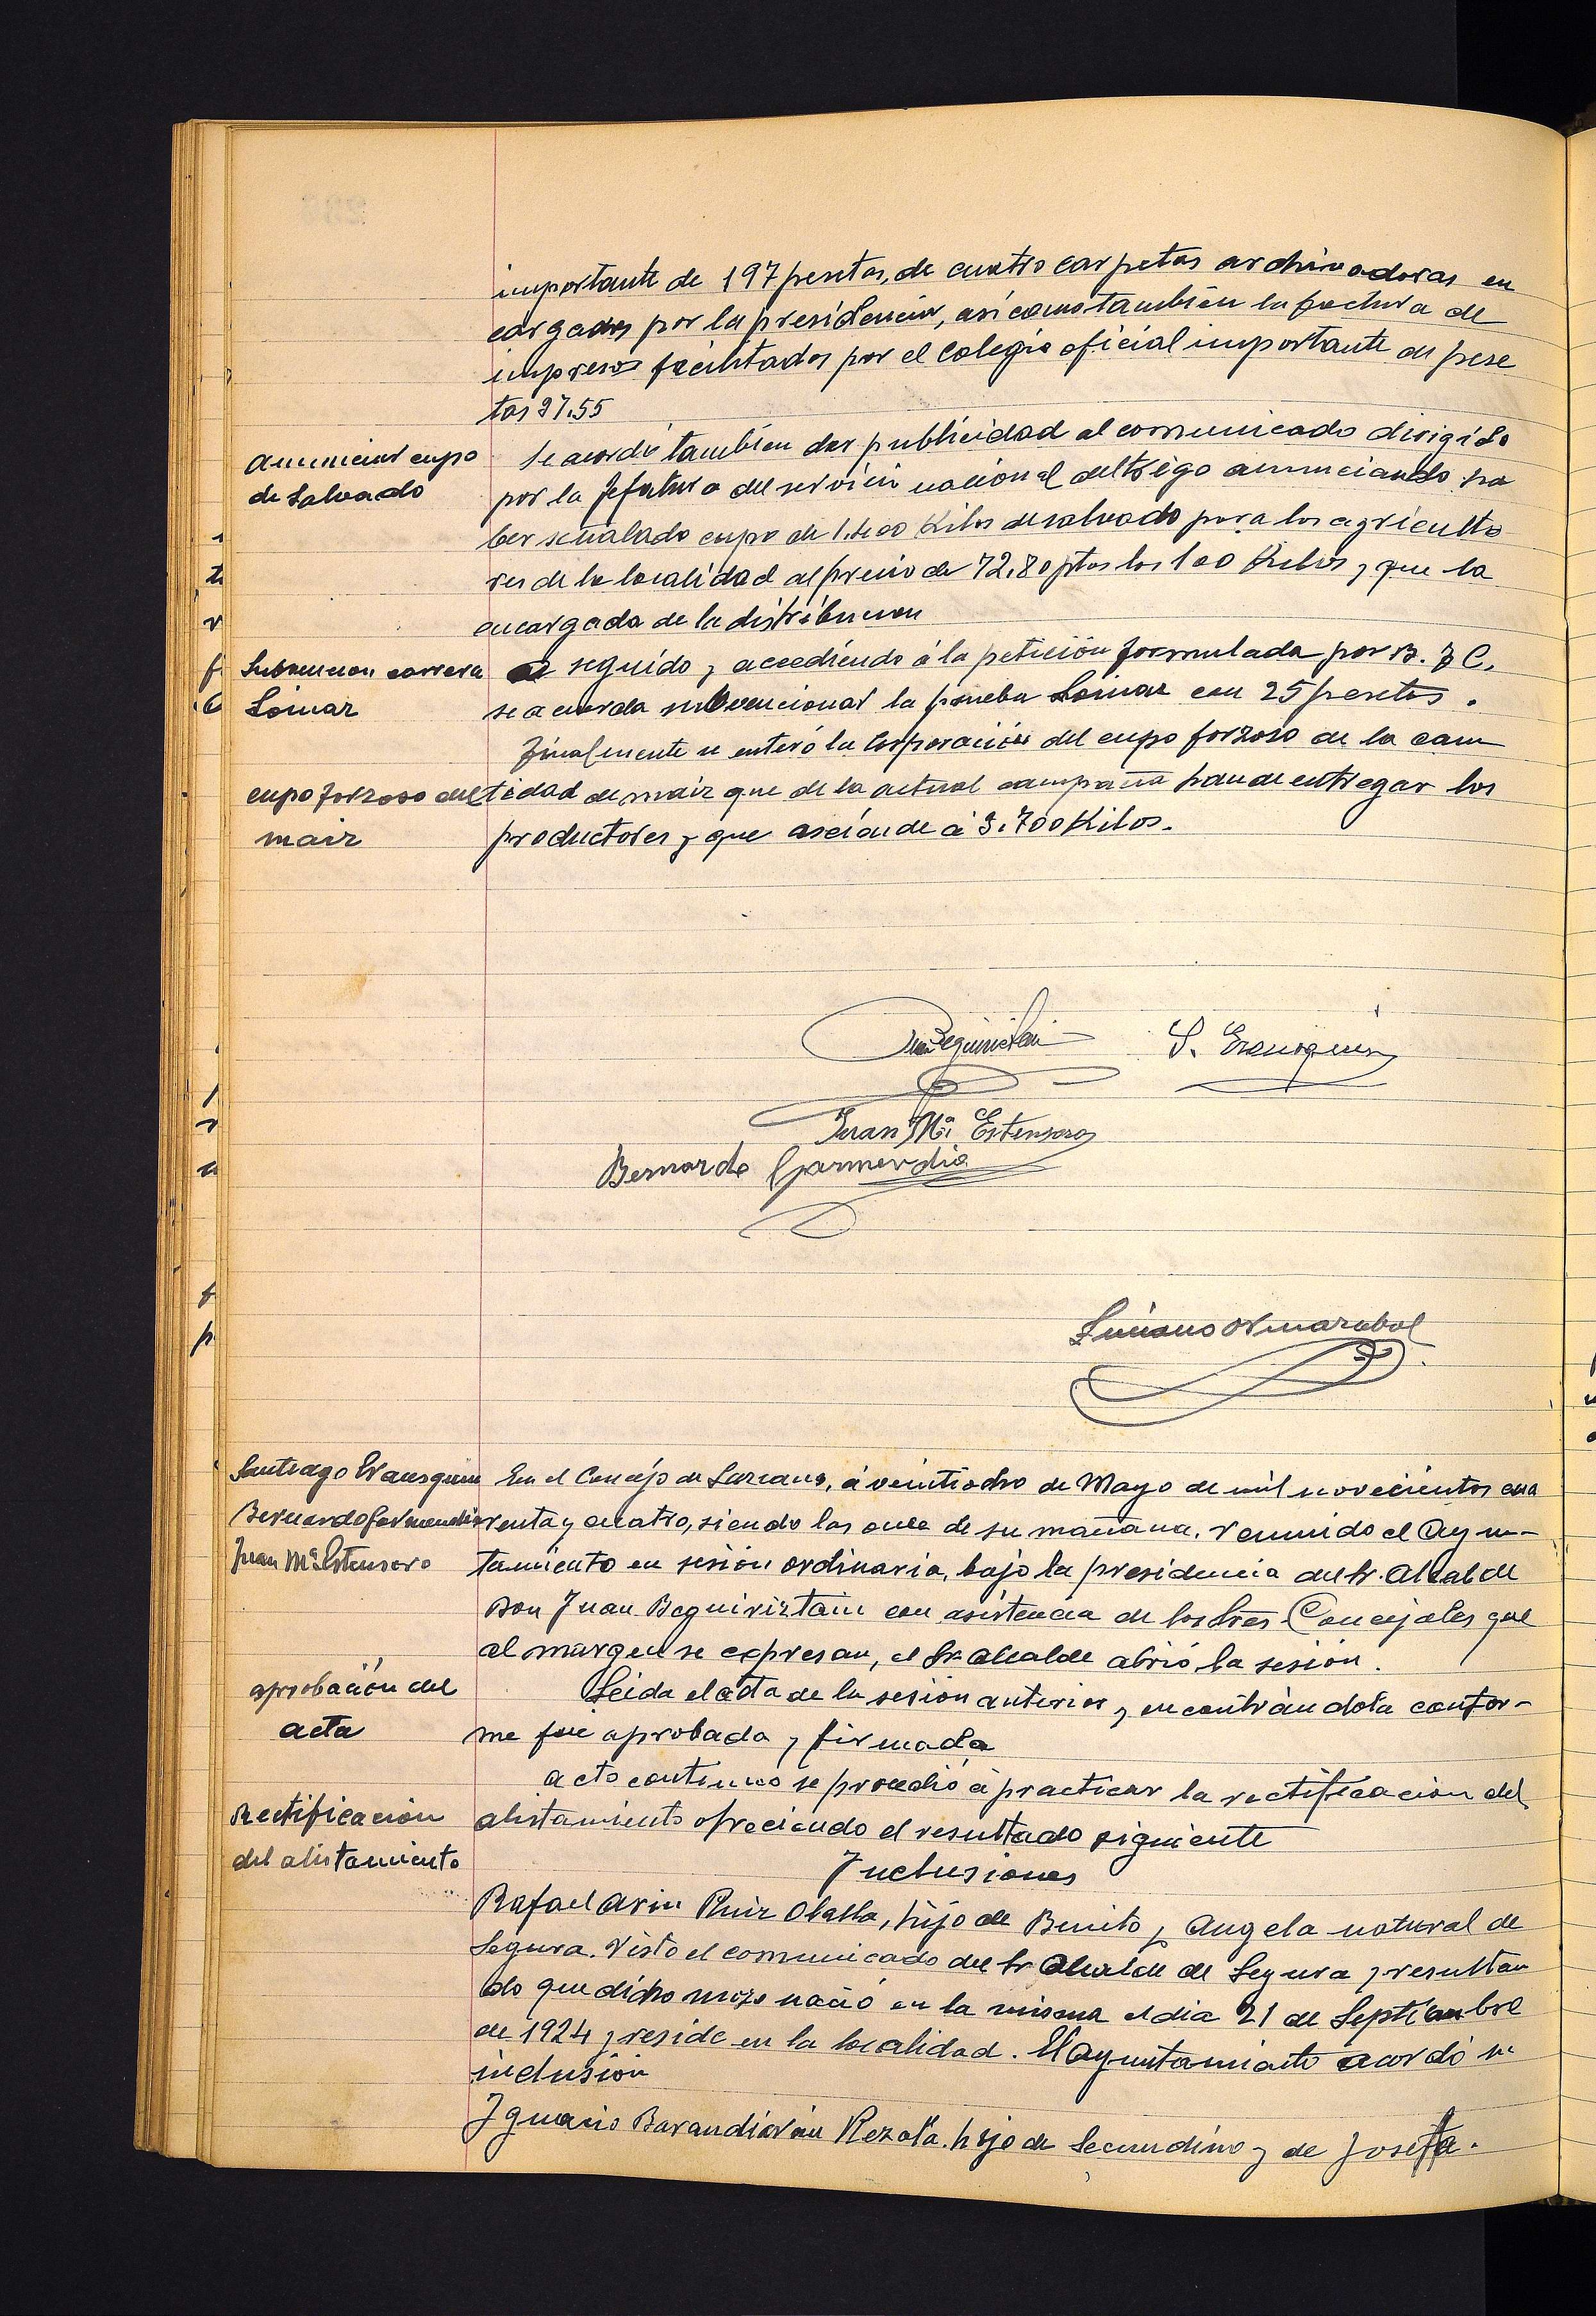 importante de 197 pesetas, de cuatro carpetas archivadoras en
cargadas por la presidencia, asi como tambien la factura de
impresos facilitados por el Colegio oficial importante de pese
tas 27.55
anunciar cupo
de Salvado
Se acordó tambien dar publicidad al comunicado dirigido
por la Jefatura del servicio nacional del trigo anunciando ha
ber señalado cupo de 1.400 Kilos de salvado para los agriculto
res de la localidad al precio de 72.80 ptas los 100 Kilos y que la
encargada de la distribucion
Subvencion carrera
Loinaz
seguido y accediendo á la petición formulada por B. J C.
se acuerda subvencionar la prueba Loinaz con 25 pesetas.
cupo forzoso del
maiz
Finalmente se enteró la Corporación del cupo forzoso de la can
tidad de maiz que de la actual campaña han de entregar los
productores y que asciende á 3.700 Kilos.
Juan Beguiristain
S. Eransquin
Juan Mª Estensoro
Bernardo Garmendia
Luciano Ormazabal
Santiago Eransquin
Bernardo Garmendia
Juan Mª Estensoro
En el Concejo de Lazcano, á veintiocho de Mayo de mil novecientos cua
renta y cuatro, siendo las once de su mañana, reunido el Ayun-
tamiento en sesión ordinaria, bajo la presidencia del Sr. Alcalde
Don Juan Beguiriztain con asistencia de los Sres Concejales que
al margen se expresan, el Sr. Alcalde abrió la sesión.
aprobación del
acta
Leida el acta de la sesion anterior y encontrándola confor-
me fué aprobada y firmada
Rectificación
del alistamiento
acto continuo se procedió á practicar la rectificacion del
alistamiento ofreciendo el resultado siguiente
Inclusiones
Rafael Arin Ruiz Olalla, hijo de Benito y Angela natural de
Segura. Visto el comunicado del Sr Alcalde de Segura y resultan
do que dicho mozo nació en la misma el dia 21 de Septiembre
de 1924 y reside en la localidad. El ayuntamiento acordó su
inclusión
Ignacio Barandiarán Rezola. hijo de Secundino y de Josefa.